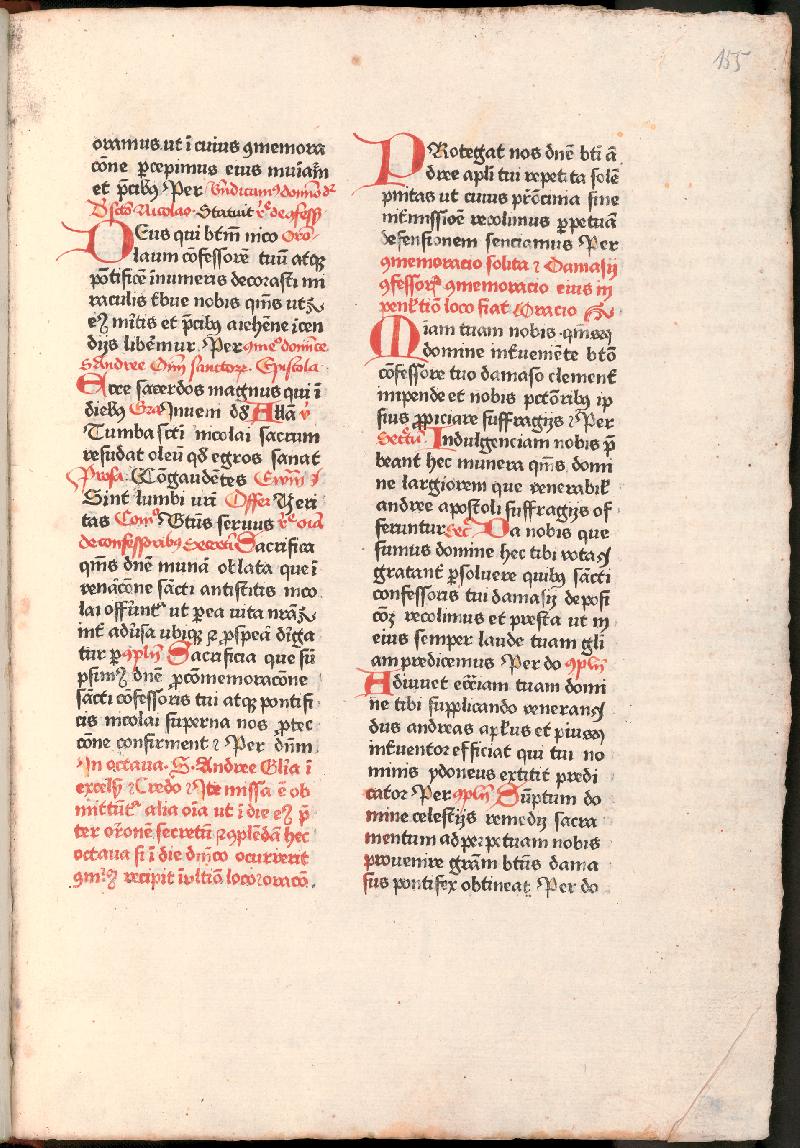 155
oramus ut ī cuius ꝯmemora
cōne ꝑcepimus eius
et p̄cibꝫ Per
De scō Nicolao Statuit
DEus qui btm̄ nico Oro
laum cōfessorē tuū atqꝫ
pōtificē īnumeris decorasti mi
raculis t̄bue nobis qm̄s ut
eꝫ mītis et p̄cibꝫ a iehēne īcen
dijs libēmur Per
S Andree Om̄ sanctorꝝ Epistola
Ecce sacerdos magnus qui ī
diebꝫ Gra Inueni dō Allā ꝟ
Tumba scti nicolai sacrum
resudat oleū qd̄ egros sanat
Prosa Cōgaudētes Ewm̄
Sint lumbi urī Offer Veri
tas Com̄o Btūs seruus
de confessoribꝫ Secretū Sacrificā
qm̄s dn̄e munā oblata que ī
renācōne sācti antistitis nico
lai offūnt ut ꝑ ea uita nrā
int̄ adūsa ubiqꝫ ꝛ ꝓspeā dīga
tur ꝑ ꝯplēn̄ Sacrificia que sū
psimꝫ dn̄e ꝓ cōmemoracōne
sācti cōfessoris tui atqꝫ pontifi
cis nicolai superna nos ꝓtec
cōne confirment ꝛ Per dn̄m
In octaua S Andree Glīa ī
excelꝫ ꝛ Credo ꝛ Ite missa ē ob
mittūt alia oīa ut ī die eꝫ p̄
ter orōnē secretū ꝛ ꝯplēdā hec
octaua si ī die dnīco ocurrerit
recipit loco
PRotegat nos dn̄e bti ā
dree apli tui repetita solē
pnītas ut cuius p̄rōcīnia sine
int̄missiōē recolimus ꝑpetuā
defensionem senciamus Per
ꝯmemoracio solita ꝛ Damasij
ꝯfessorꝭ ꝯmemoracio eius in
loco fiat Oracio
Miam tuam nobis qm̄s
domine int̄uenīēte btō
cōfessore tuo damaso clement̄
impende et nobis pctōribꝫ ip
sius ꝓpiciare suffragijs ꝛ Per
Sectū Indulgenciam nobis p̄
beant hec munera qm̄s domi
ne largiorem que venerabil̄
andree apostoli suffragijs of
feruntur Sec̄ Da nobis que
sumus domine hec tibi vota
gratant̄ ꝑsoluere quibꝫ sācti
confessoris tui damasij deposi
cōꝫ recolimus et presta ut in
eius semper laude tuam gli
am predicemus Per do ꝯplēn̄
Adiuuet ecc̄iam tuam domi
ne tibi supplicando venerand
dus andreas apl̄us et pius
int̄uentor efficiat qui tui no
minis ydoneus extitit predi
cator Per ꝯplēn̄ Sūptum do
mine celestijs remedij sacra
mentum ad perpetuam nobis
prouenire grām btūs dama
sus pontifex obtineat Per do